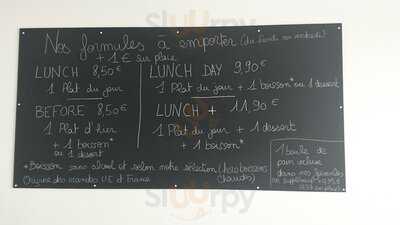 Sluurpy
Nos formules à emporter (du lundi au vendredi)
+ 1€ sur place
LUNCH 8,50€
1 Plat du jour
BEFORE 8,50€
1 Plat d'hier
+ 1 boisson*
ou 1 dessert
LUNCH DAY 9,90€
1 Plat du jour + 1 boisson* ou 1 dessert
LUNCH + 11,90€
1 Plat du jour + 1 dessert
+ 1 boisson*
* Boisson sans alcool et selon notre sélection (hors boissons chaudes)
Origine des viandes UE et France
1 boule de
pain incluse
dans nos formules
Sluurpy